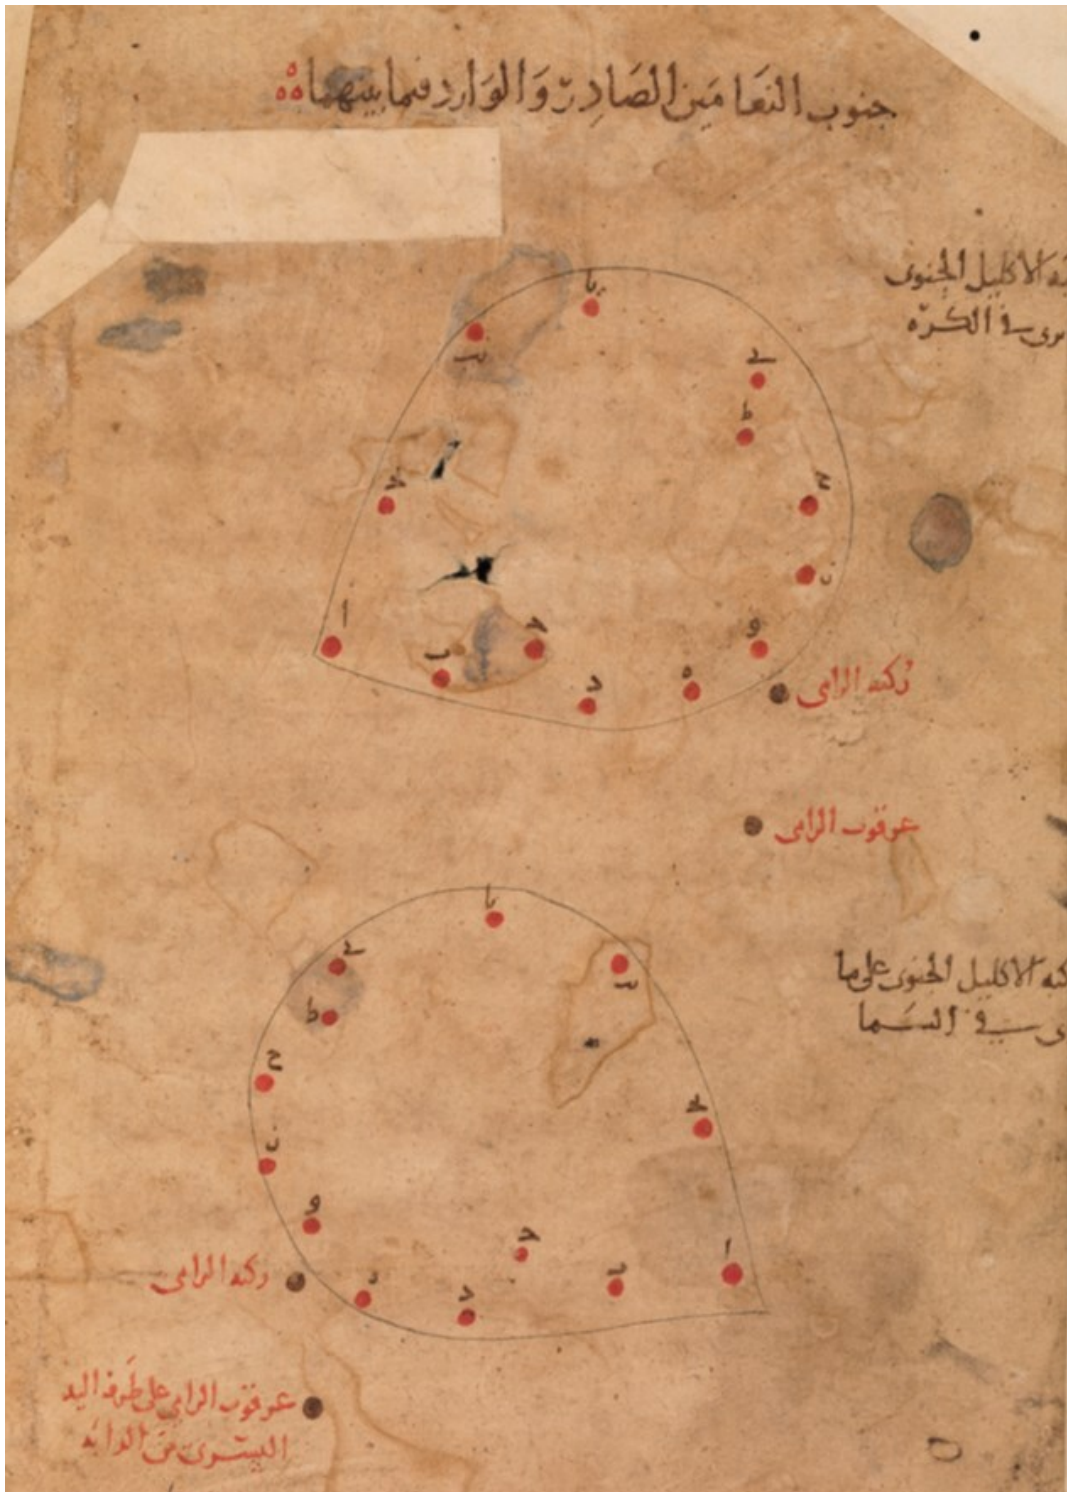 جنوب النعامين الصادر والوارد فيما بينهما
الاكليل الجنوبى
فى الكرة
يا
يب
ى
ط
يج
ح
ز
ا
ب
ج
و
د
ه
ركبة الرامى
عرقوب الرامى
يا
ى
يب
ط
الاكليل الجنوبى على ما
فى السما
ح
يج
ز
و
ج
ا
ب
ركبة الرامى
د
عرقوب الرامى على طرف اليد
اليسرى من الدابة